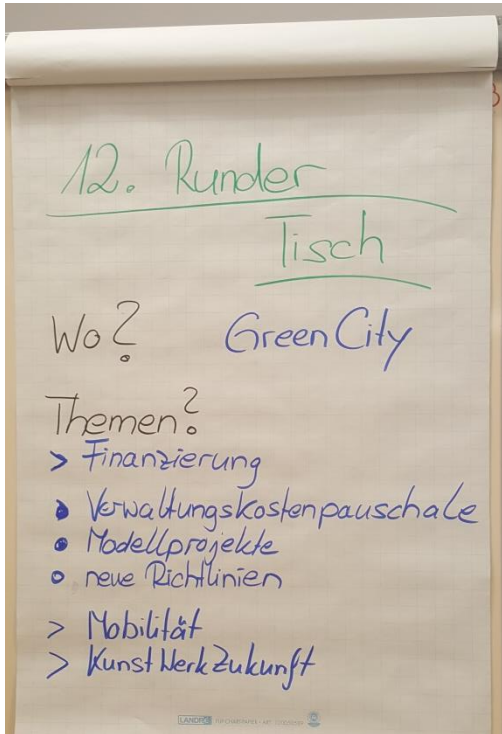 12. Runder
Tisch
Wo? GreenCity
Themen?
> Finanzierung
• Verwaltungskostenpauschale
• Modellprojekte
○ neue Richtlinien
> Mobilität
> KunstWerkZukunft
LANDRÉ